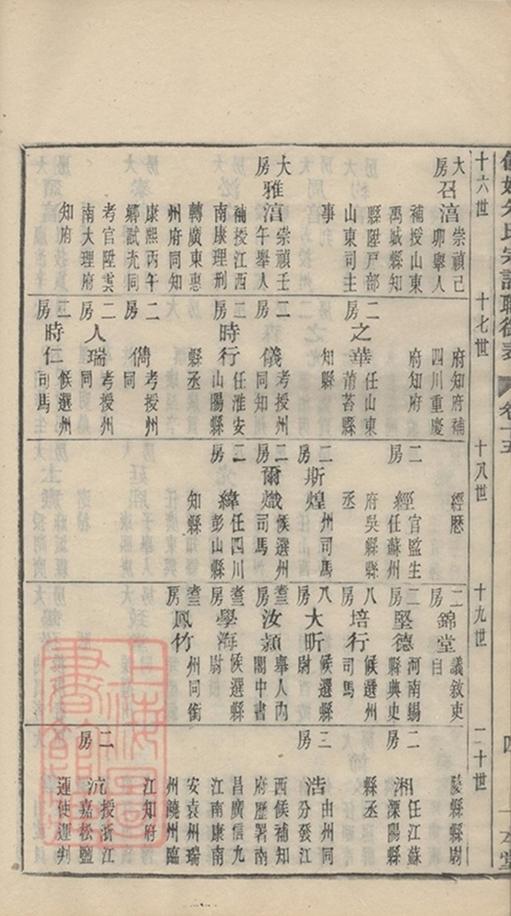 氏宗譜職銜表
卷十五
四
一本堂
十六世
大房
召湻
崇禎己
卯舉人
補授山東
禹城縣知
縣陞戶部
山東司主
事
大房
雅湻
崇禎壬
午舉人
補授江西
南康理刑
轉廣東惠
州府同知
康熙丙午
鄉試充同
考官陞雲
南大理府
知府
十七世
府知府補
四川重慶
府知府
二房
之華
任山東
縣
知縣
二房
儀
考授州
同知
三房
時行
任淮安
山陽縣
縣丞
二房
儔
考授州
同
二房
人瑞
考授州
同
三房
時仁
候選州
司馬
十八世
經歷
二房
經
官監生
任蘇州
府吳縣縣
丞
二房
斯煌
州司馬
二房
爾熾
候選州
司馬
二房
緯
任四川
彭山縣
知縣
十九世
二房
錦堂
議敘吏
目
二房
堅德
河南錫
縣典史
八房
培行
候選州
司馬
八房
大昕
候選縣
尉
房
汝潁
舉人內
閣中書
房
學海
候選縣
尉
房
鳳竹
州同銜
二十世
陵縣縣尉
二房
湘
任江蘇
溧陽縣
縣丞
三房
浩
由州同
分發江
西候補知
府歷署南
昌廣信九
江南康南
安袁州瑞
州饒州臨
江知府
二房
沆
授浙江
嘉松鹽
運使運判
上海圖書館藏